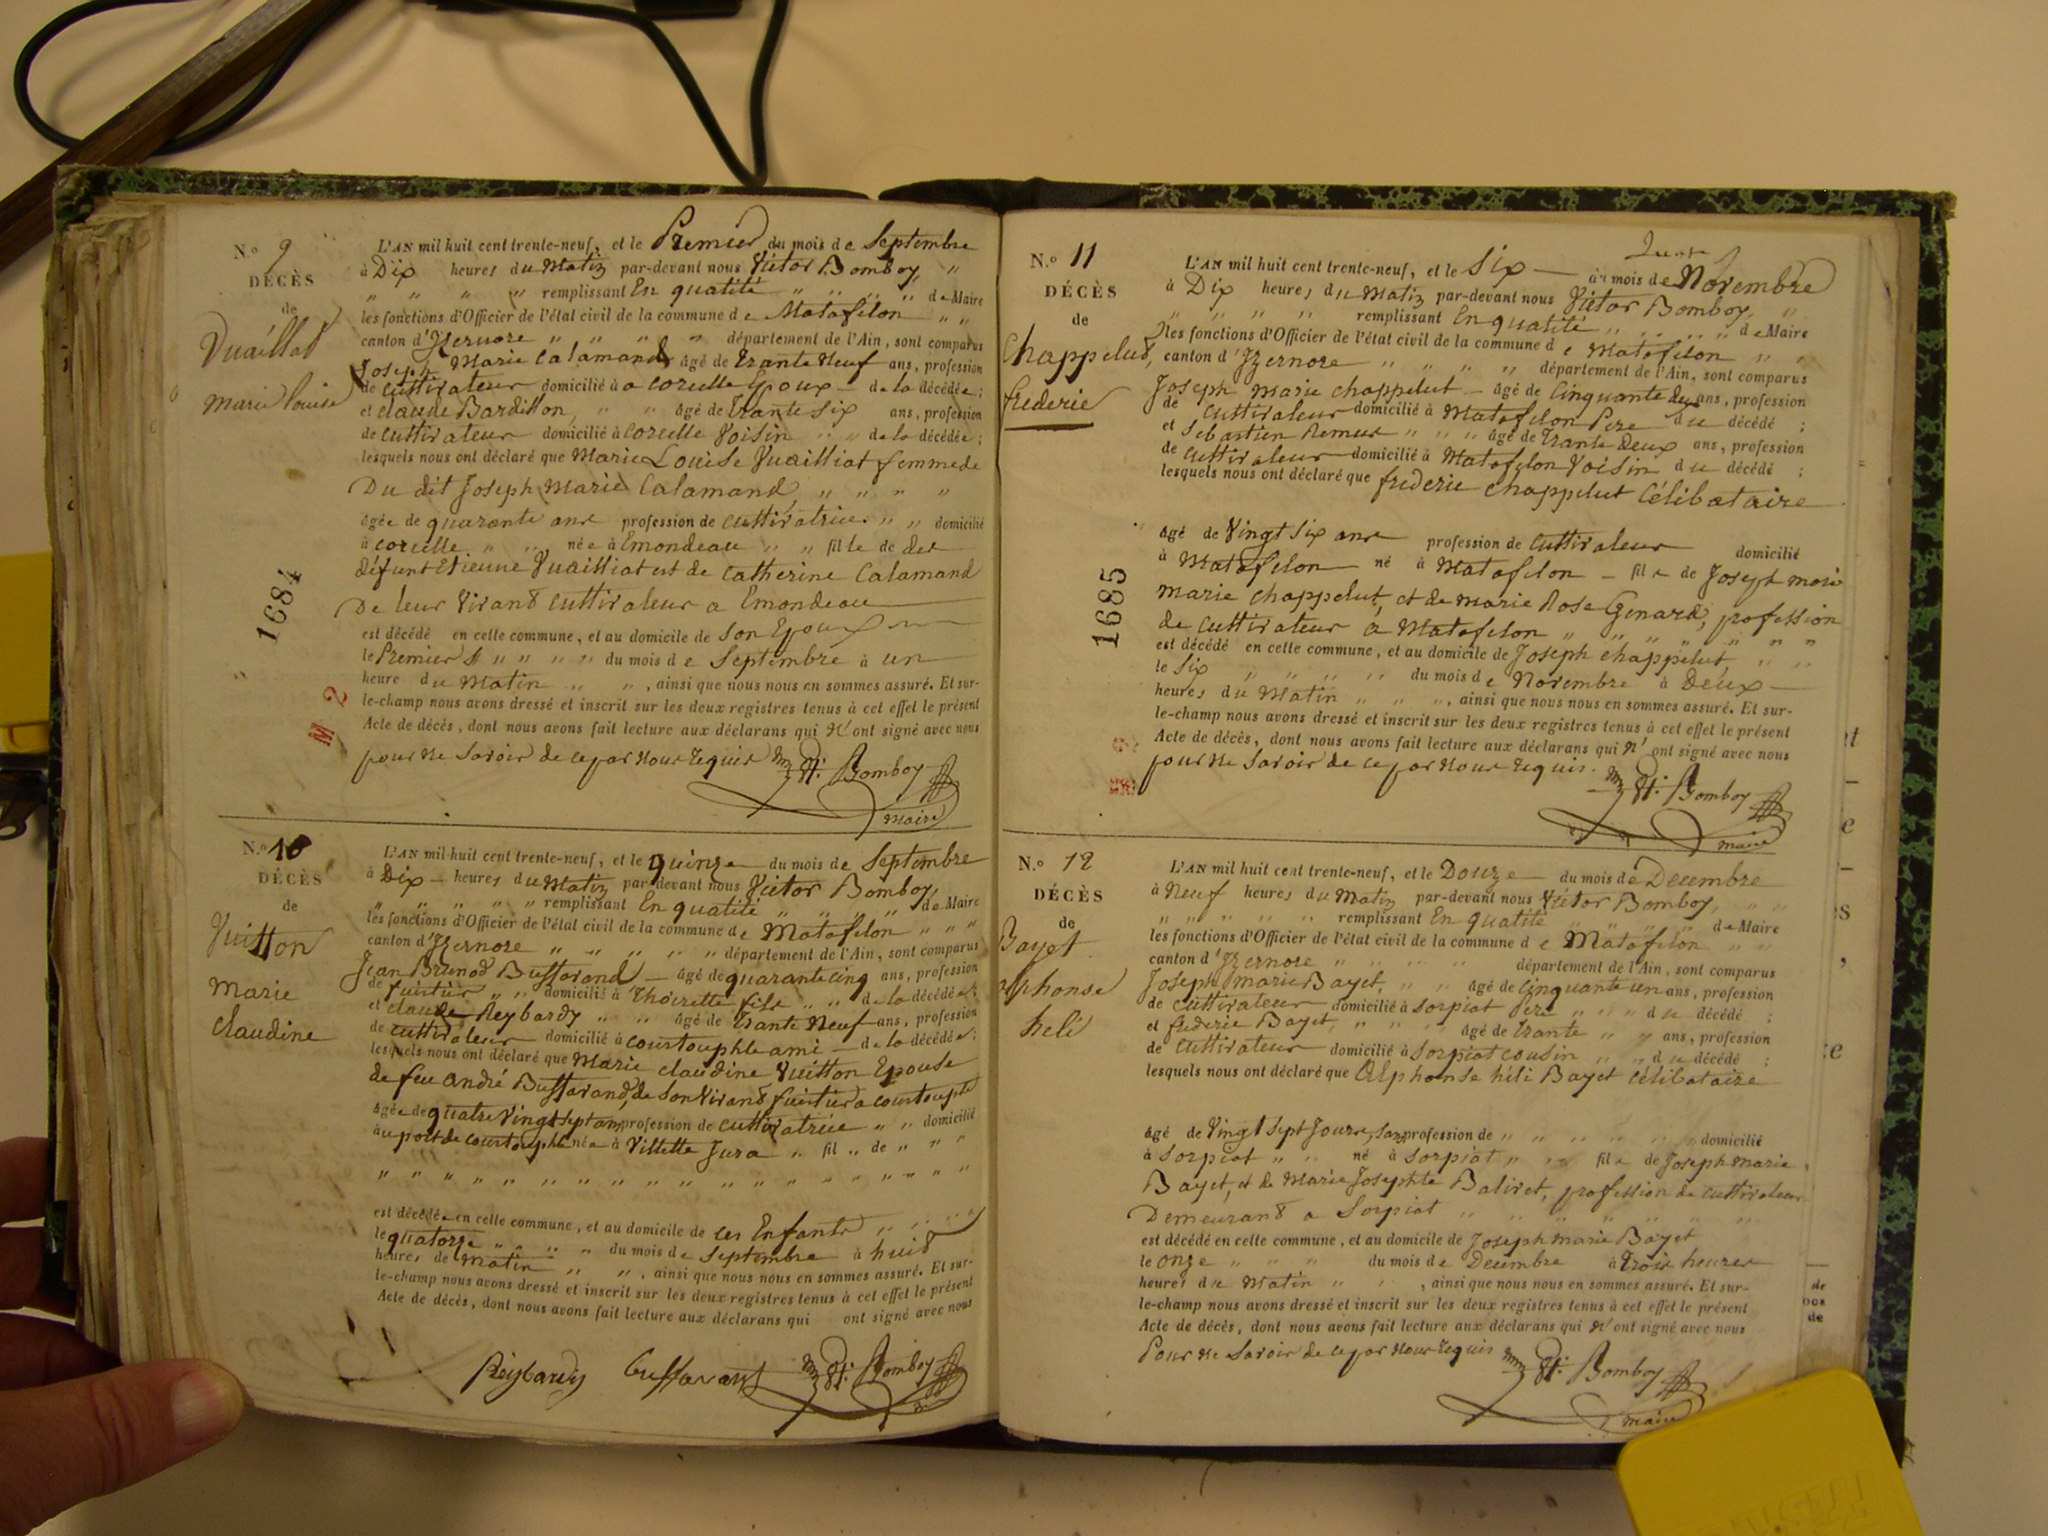 N.º 9
DÉCÈS
de
Vuaillat
Marie Louise
1684
M 2
L'AN mil huit cent trente-neuf, et le Premier du mois de Septembre
à Dix heures du Matin par-devant nous Victor Bomboy "
" " " " remplissant En qualité " " " " de Maire
les fonctions d'Officier de l'état civil de la commune de Matafelon " "
canton d'Izernore " " " " département de l'Ain, sont comparus
Joseph Marie Calamand âgé de trante Neuf ans, profession
de cultivateur domicilié à a corcelle Epoux de la décédée;
et claude Bardillon, " " âgé de trante six ans, profession
de cultivateur domicilié à corcelle Voisin " " de la décédée;
lesquels nous ont déclaré que Marie Louise Vuailliat femme de
Du dit Joseph Marie Calamand, " " " "
âgée de quarante ans profession de cultivatrice " " domicilié
à corcelle " " née à Emondeau " " fille de des
défunt Etienne Vuailliat est de Catherine Calamand
De leur Vivant cultivateur a Emondeau
est décédé en cette commune, et au domicile de son Epoux
le Premier " " " " du mois de Septembre à un
heure du Matin " " , ainsi que nous nous en sommes assuré. Et sur-
le-champ nous avons dressé et inscrit sur les deux registres tenus à cet effet le présent
Acte de décès, dont nous avons fait lecture aux déclarans qui n'ont signé avec nous
pour ne Savoir de ce par Nous requis Vt: Bomboy
maire
N.º 10
DÉCÈS
de
Vuitton
Marie
claudine
L'AN mil huit cent trente-neuf, et le quinze du mois de Septembre
à Dix heures du Matin par-devant nous Victor Bomboy,
" " " " " remplissant En qualité " " " de Maire
les fonctions d'Officier de l'état civil de la commune de Matafelon " " "
canton d'Izernore " " " " " " département de l'Ain, sont comparus
Jean Brunod Buffavand âgé de quarante cinq ans, profession
de domicilié à Thoirette fils " " de la décédée;
et claude Reybardy " " âgé de trante Neuf ans, profession
de cultivateur domicilié à courtouphle ami de la décédée;
lesquels nous ont déclaré que Marie claudine Vuitton Epouse
de feu André Buffavand, de Son Vivant a courtouphle
âgée de quatre Vingt Sept ans profession de cultivatrice " " domicilié
au port de courtouphle née à Villette Jura " fil " de " " "
" " " " " " " " " " " " " " " " " "
est décédée en cette commune, et au domicile de ces Enfants " " " "
le quatorze " " " " du mois de septembre à huit
heures de matin " " , ainsi que nous nous en sommes assuré. Et sur-
le-champ nous avons dressé et inscrit sur les deux registres tenus à cet effet le présent
Acte de décès, dont nous avons fait lecture aux déclarans qui ont signé avec nous
Reybardy Buffavand Vt: Bomboy
N.º 11
DÉCÈS
de
Chappelut,
frederic
1685
L'AN mil huit cent trente-neuf, et le Six du mois de Novembre
à Dix heures du Matin par-devant nous Victor Bomboy, "
" " " " remplissant En qualité " " " " de Maire
les fonctions d'Officier de l'état civil de la commune de Matafelon " "
canton d'Izernore " " " " département de l'Ain, sont comparus
Joseph marie chappelut âgé de Cinquante ans, profession
de cultivateur domicilié à Matafelon Pere du décédé ;
et Sebastien Remus " " " âgé de trante Deux ans, profession
de cultivateur domicilié à Matafelon Voisin du décédé ;
lesquels nous ont déclaré que frederic chappelut Célibataire
âgé de Vingt Six ans profession de cultivateur domicilié
à Matafelon né à Matafelon fils de Joseph marie
marie chappelut, et de marie Rose Genard, profession
de cultivateur a Matafelon " " " " " " "
est décédé en cette commune, et au domicile de Joseph chappelut, " "
le six " " " " du mois de Novembre à Deux
heures du Matin " " " , ainsi que nous nous en sommes assuré. Et sur-
le-champ nous avons dressé et inscrit sur les deux registres tenus à cet effet le présent
Acte de décès, dont nous avons fait lecture aux déclarans qui n'ont signé avec nous
pour ne Savoir de ce par Nous requis. Vt: Bomboy
maire
N.º 12
DÉCÈS
de
Bayet
alphonse
heli
L'AN mil huit cent trente-neuf, et le Douze du mois de Decembre
à Neuf heures du Matin par-devant nous Victor Bomboy, " "
" " " " " remplissant En qualité " " " de Maire
les fonctions d'Officier de l'état civil de la commune de Matafelon " "
canton d'Izernore " " " " département de l'Ain, sont comparus
Joseph marie Bayet, " " âgé de cinquante un ans, profession
de cultivateur domicilié à Sorpiat Pere " " " du décédé ;
et frederic Bayet, " " " " âgé de trante " " ans, profession
de cultivateur domicilié à Sorpiat cousin " " du décédé ;
lesquels nous ont déclaré que Alphonse héli Bayet célibataire
âgé de Vingt Sept Jours, San profession de " " " " " " domicilié
à Sorpiat " " né à Sorpiat " " " fils de Joseph Marie
Bayet, et de Marie Josephte Balivet, profession de cultivateur
Demeurand a Sorpiat " " " " " " "
est décédé en cette commune, et au domicile de Joseph Marie Bayet
le onze " " " du mois de Decembre à trois heures
heures du Matin " " , ainsi que nous nous en sommes assuré. Et sur-
le-champ nous avons dressé et inscrit sur les deux registres tenus à cet effet le présent
Acte de décès, dont nous avons fait lecture aux déclarans qui n'ont signé avec nous
Pour ne Savoir de ce par Nous requis Vt: Bomboy
maire